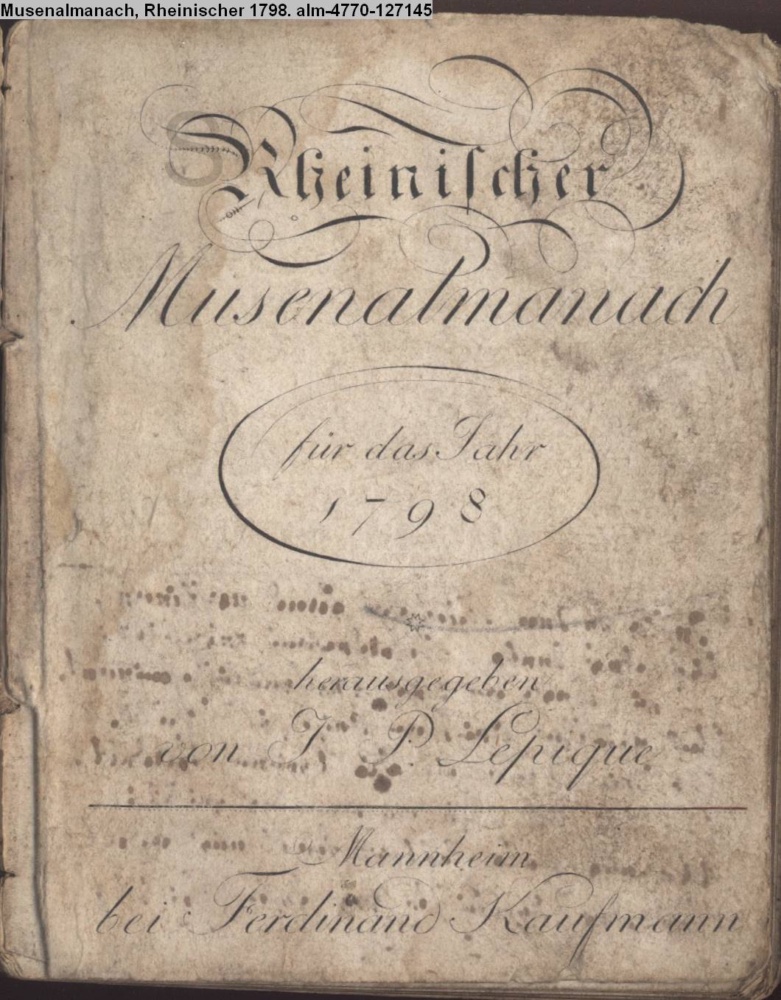 Musenalmanach, Rheinischer 1798. alm-4770-127145
Rheinischer
Musenalmanach
für das Jahr
1798
herausgegeben
von J. P. Lepique
Mannheim
bei Ferdinand Kaufmann